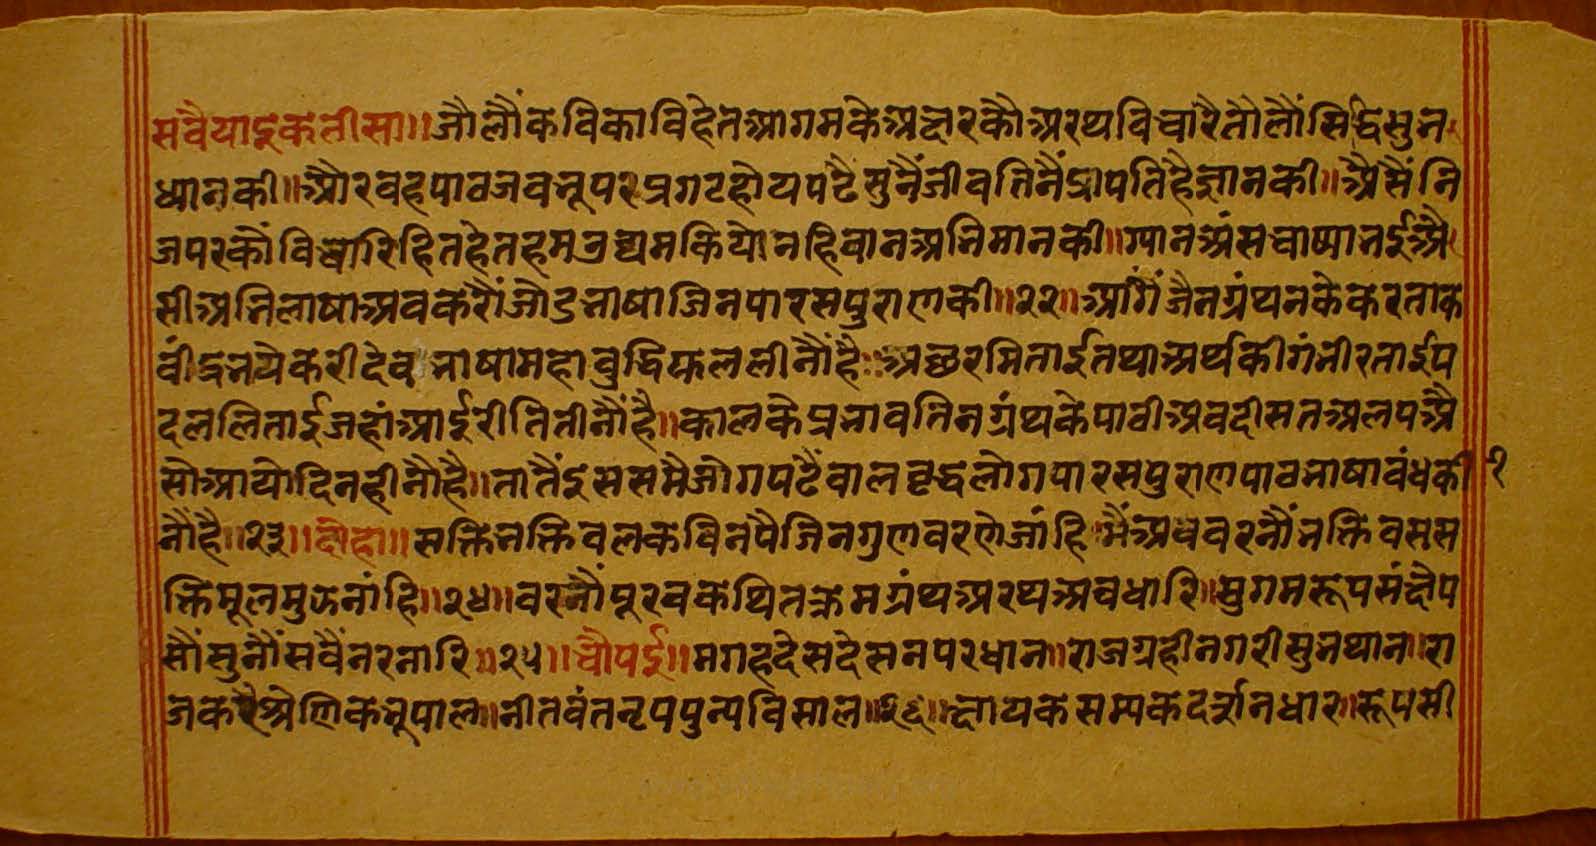 सवैयाइकतीसा॥ जौलौंकविकाविहेतआगमकेअछरकौअरथविचारैतौलौंसिद्धिसुभ
ध्यानकी॥ औरवहपाठजबभूपरप्रगटहोयपढैसुनैंजीवतिनैंप्रापतिहैज्ञानकी॥ असैंनि
जपरकौविचारिहितहेतहमउद्यमकियोनहिवानअभिमानकी॥ ग्यानअंसचाषाभईअै
सीअभिलाषाअबकरौंजोडभाषाजिनपारसपुराणकी॥२२॥ आगैंजैनग्रंथनकेकरताक
वींद्रभयेकरीदेवभाषामहाबुद्धिफललीनौंहै॥ अछरमिताईतथाअर्थकीगंभीरताईप
दललिताईजहांआईरीतितीनौंहै॥ कालकेप्रभावतिनग्रंथकेपाठीअबदीसतअलपअै
सोआयोदिनहीनौहै॥ तातैंइससमैजोगपढैंबालबृद्धलोगपारसपुराणपाठभाषाबंधकी १
नौंहै॥२३॥ दोहा॥ सक्तिभक्तिबलकविनपैजिनगुणवरणेजांहि॥ मैंअबवरनौंभक्तिवसस
क्तिमूलमुझनांहि॥२४॥ वरनौंपूरवकथितक्रमग्रंथअरथअवधारि॥ सुगमरूपसंछेप
सौंसुनौंसबैंनरनारि॥२५॥ चौपई॥ मगहदेसदेसनपरधान॥ राजग्रहीनगरीसुभथान॥ रा
जकरैश्रेणिकभूपाल॥ नीतवंतनृपपुन्यविसाल॥२६॥ छायकसम्यकदर्शनधार॥ रूपसी